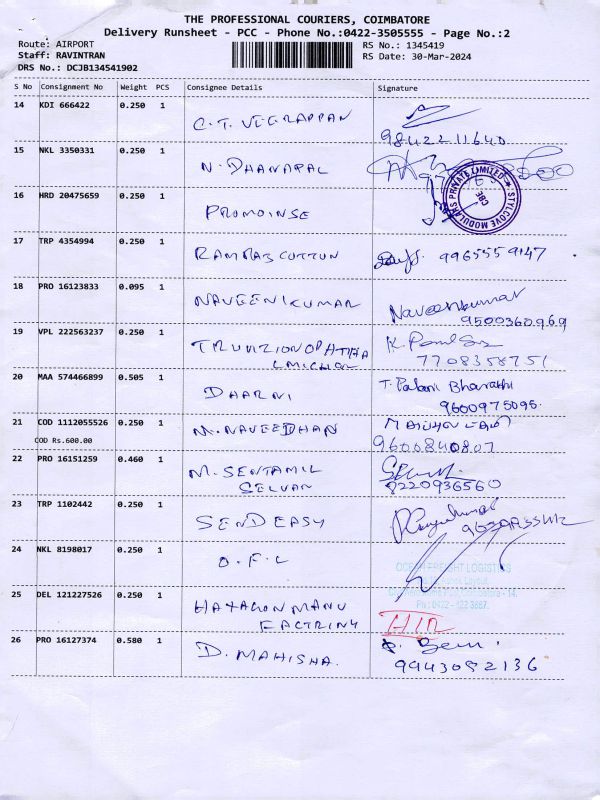 THE PROFESSIONAL COURIERS, COIMBATORE
Delivery Runsheet - PCC - Phone No.:0422-3505555 - Page No.:2
Route: AIRPORT
RS No.: 1345419
Staff: RAVINTRAN
RS Date: 30-Mar-2024
DRS No.: DCJB134541902
S No Consignment No Weight PCS Consignee Details Signature
14 KDI 666422 0.250 1 C.T. VEERAPPAN
9842211640
15 NKL 3350331 0.250 1 N. DHANAPAL
16 HRD 20475659 0.250 1 PROMOINSE
STYLCOVE MODULARS PRIVATE LIMITED
CBE
17 TRP 4354994 0.250 1 RAMRAJ COTTON 9965559147
18 PRO 16123833 0.095 1 NAVEENIKUMAR Naveenkumar
9500360969
19 VPL 222563237 0.250 1
7708358751
20 MAA 574466899 0.505 1 DHARNI T. Palani Bharathi
9600975095.
21 COD 1112055526 0.250 1 M. NAVEEDHAN
COD Rs.600.00
9600840807
22 PRO 16151259 0.460 1 M. SENTAMIL
SELVAN
8220936560
23 TRP 1102442 0.250 1 SENDEASY
24 NKL 8198017 0.250 1 O.F.L
OCEAN FREIGHT LOGISTICS
25 DEL 121227526 0.250 1
26 PRO 16127374 0.580 1 D. MAHISHA.
9943052136